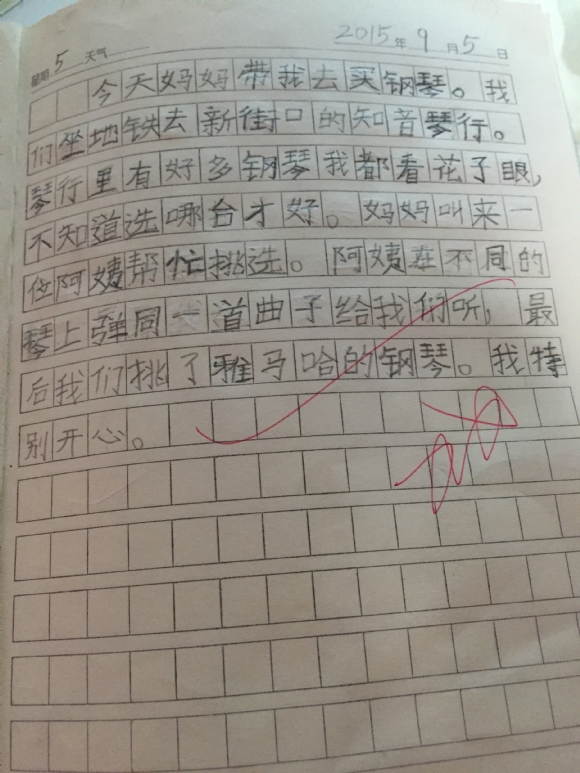 星期5 天气 2015年9月5日
今天妈妈带我去买钢琴。我
们坐地铁去新街口的知音琴行。
琴行里有好多钢琴我都看花了眼,
不知道选哪台才好。妈妈叫来一
位阿姨帮忙挑选。阿姨在不同的
琴上弹同一道曲子给我们听,最
后我们挑了雅马哈的钢琴。我特
别开心。